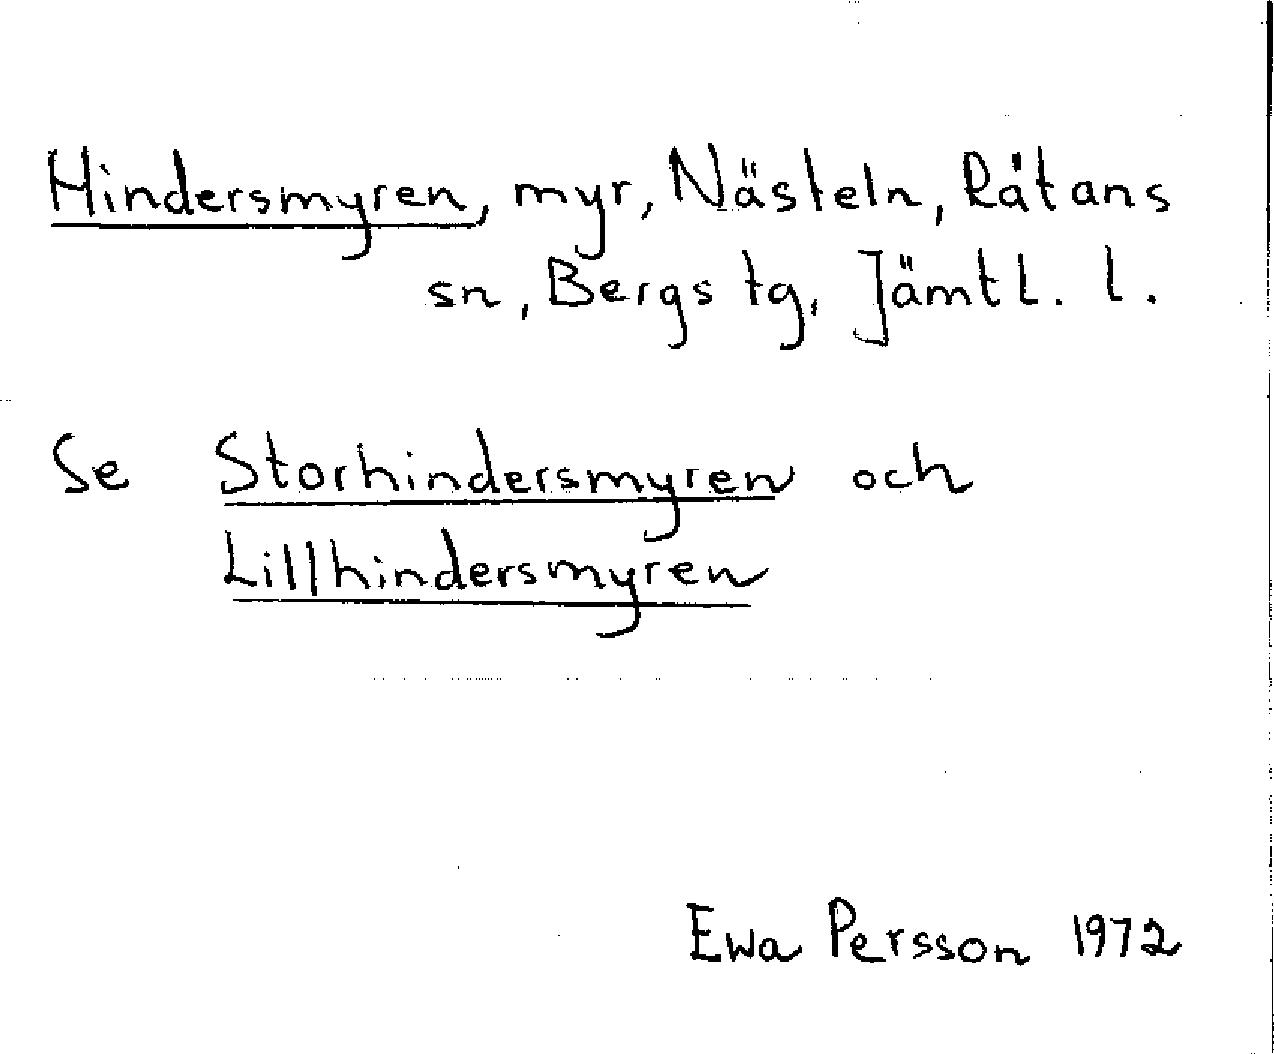 Hindersmyren, myr, Nästeln, Råtans
sn, Bergs tg, Jämtl. l.
Se Storhindersmyren och
Lillhindersmyren
Ewa Persson 1972